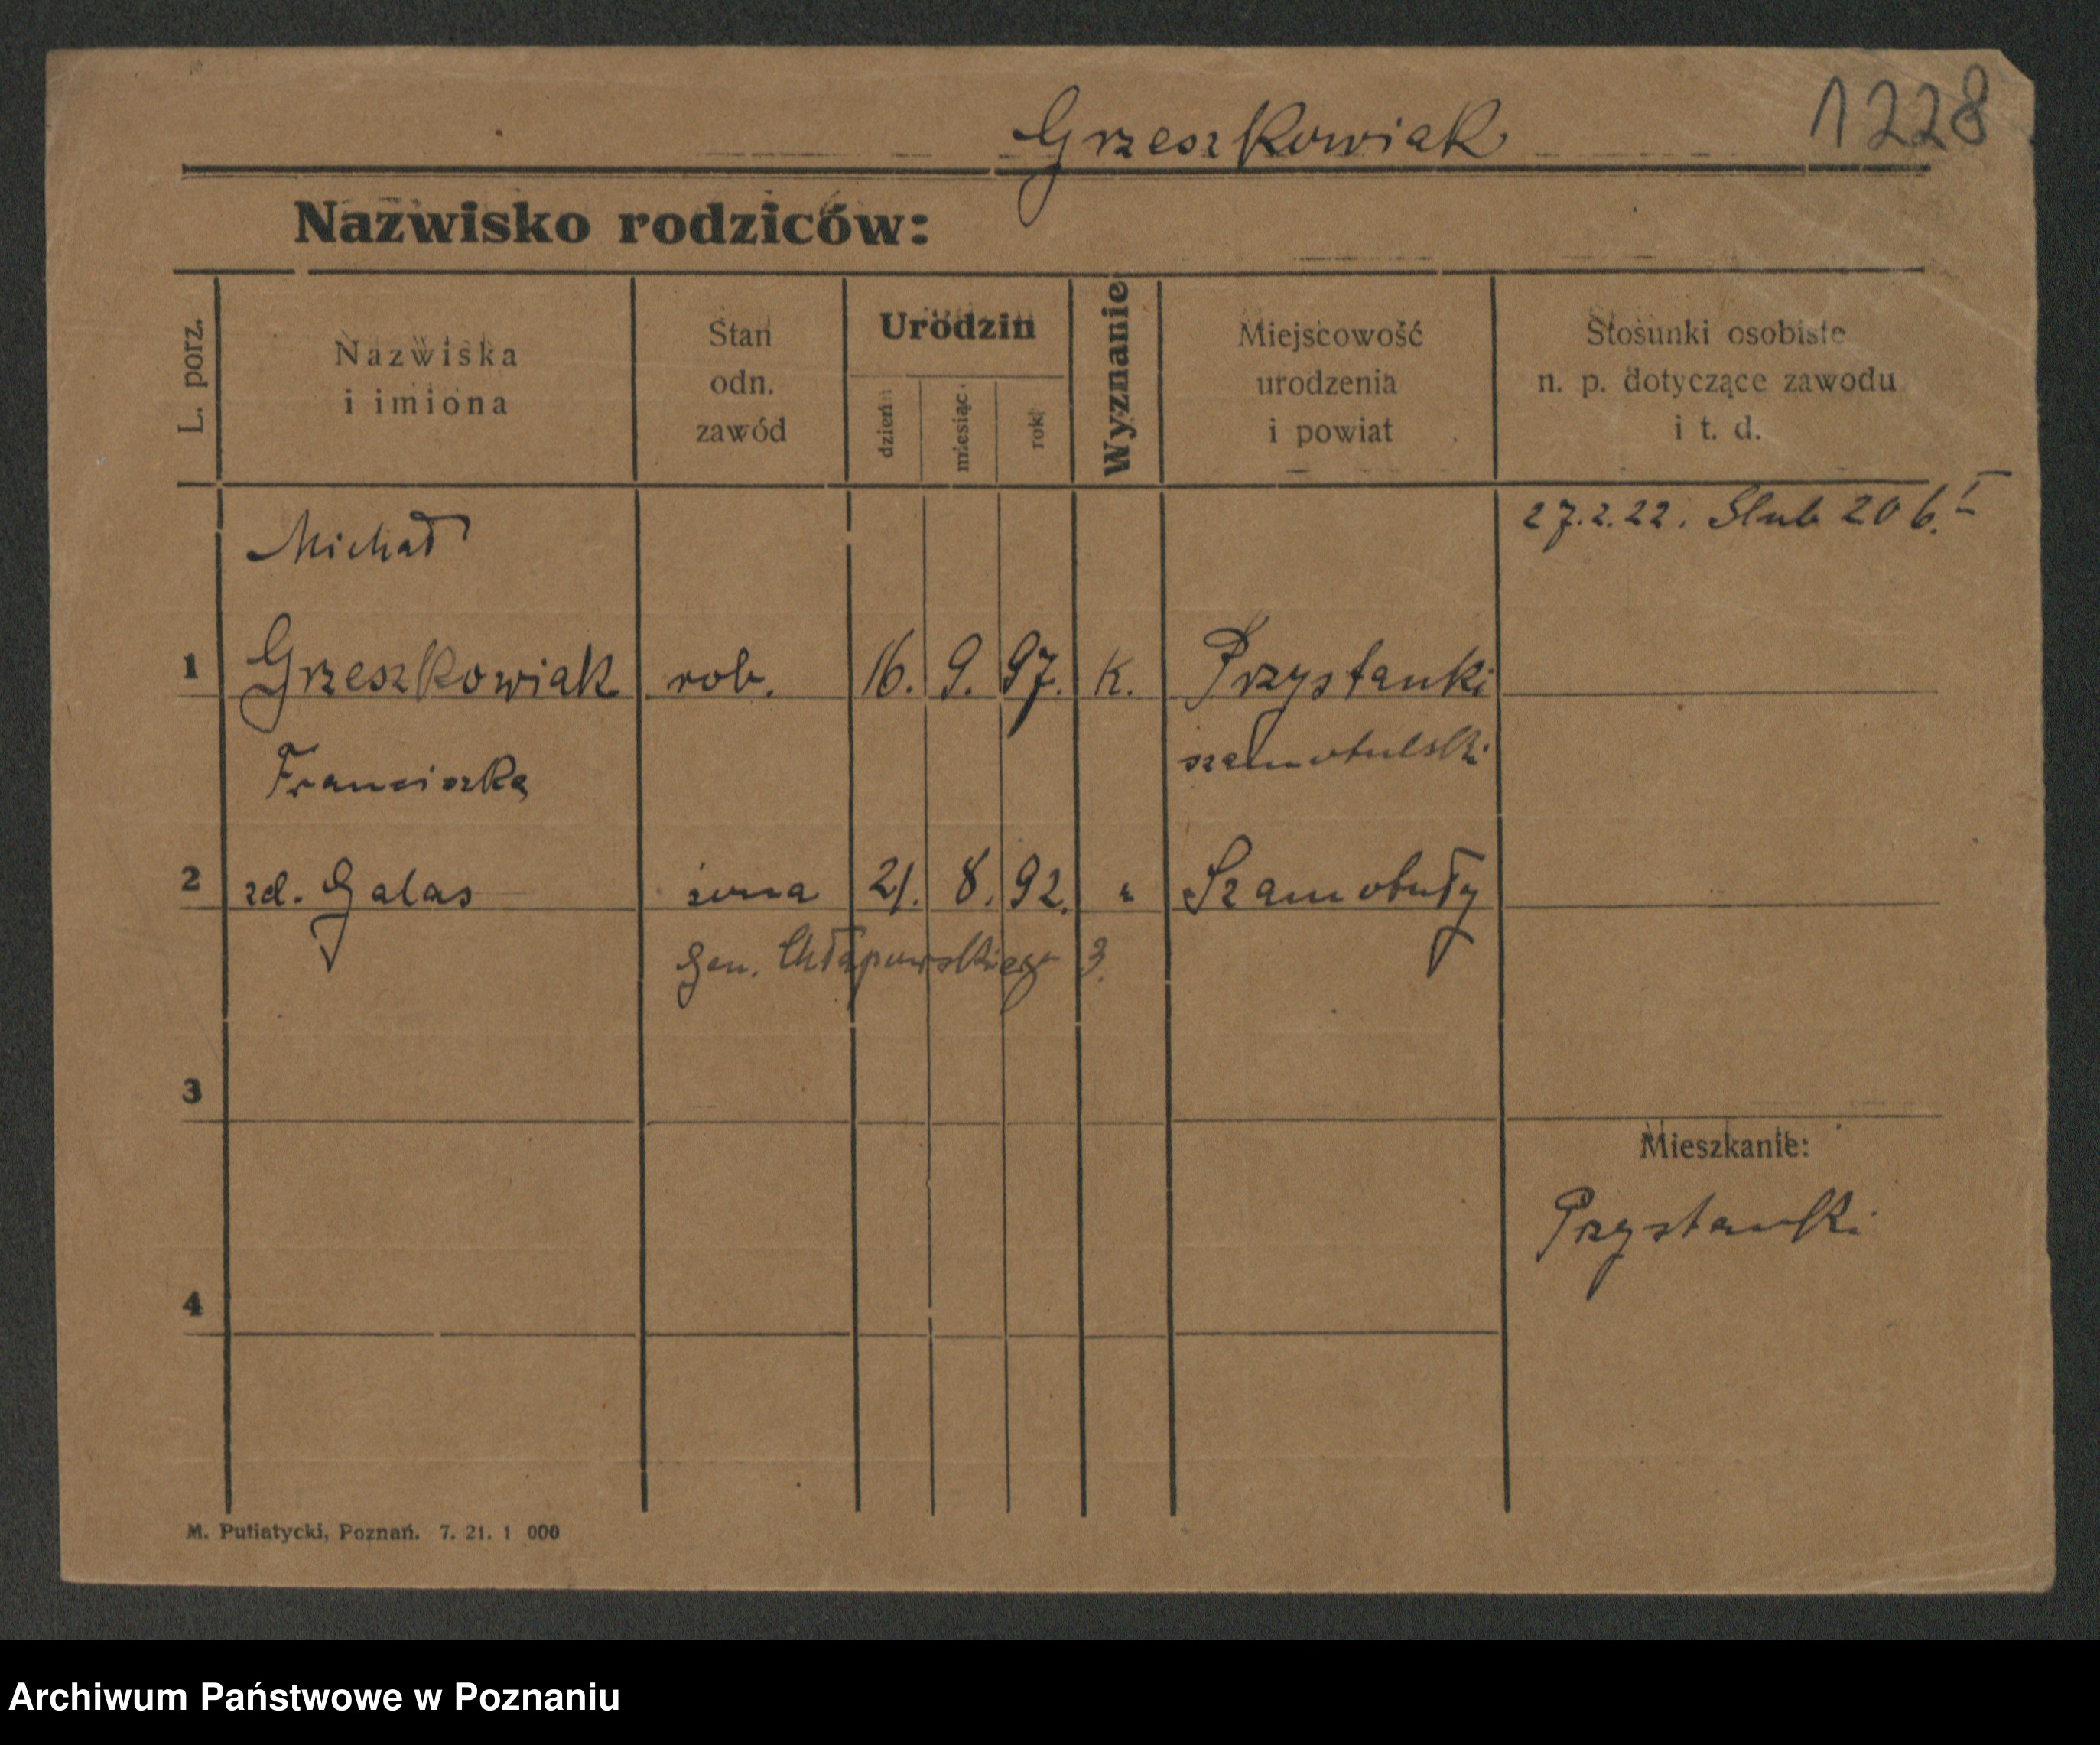 1228
Grzeszkowiak
Nazwisko rodziców:
L. porz.
Nazwiska
i imiona
Stan
odn.
zawód
Urodzin
dzień
miesiąc
rok
Wyznanie
Miejscowość
urodzenia
i powiat
Stosunki osobiste
n. p. dotyczące zawodu
i t. d.
27.2.22. Slub 206. I
Michał
1 Grzeszkowiak rob. 16. 9. 97. K. Przystanki
szamotulski
Franciszka
2 zd. Galas żona 21. 8. 92. " Szamotuły
Gen. Chłapowskiego 3.
3
Mieszkanie:
Przystanki
4
M. Putiatycki, Poznań. 7. 21. 1 000
Archiwum Państwowe w Poznaniu